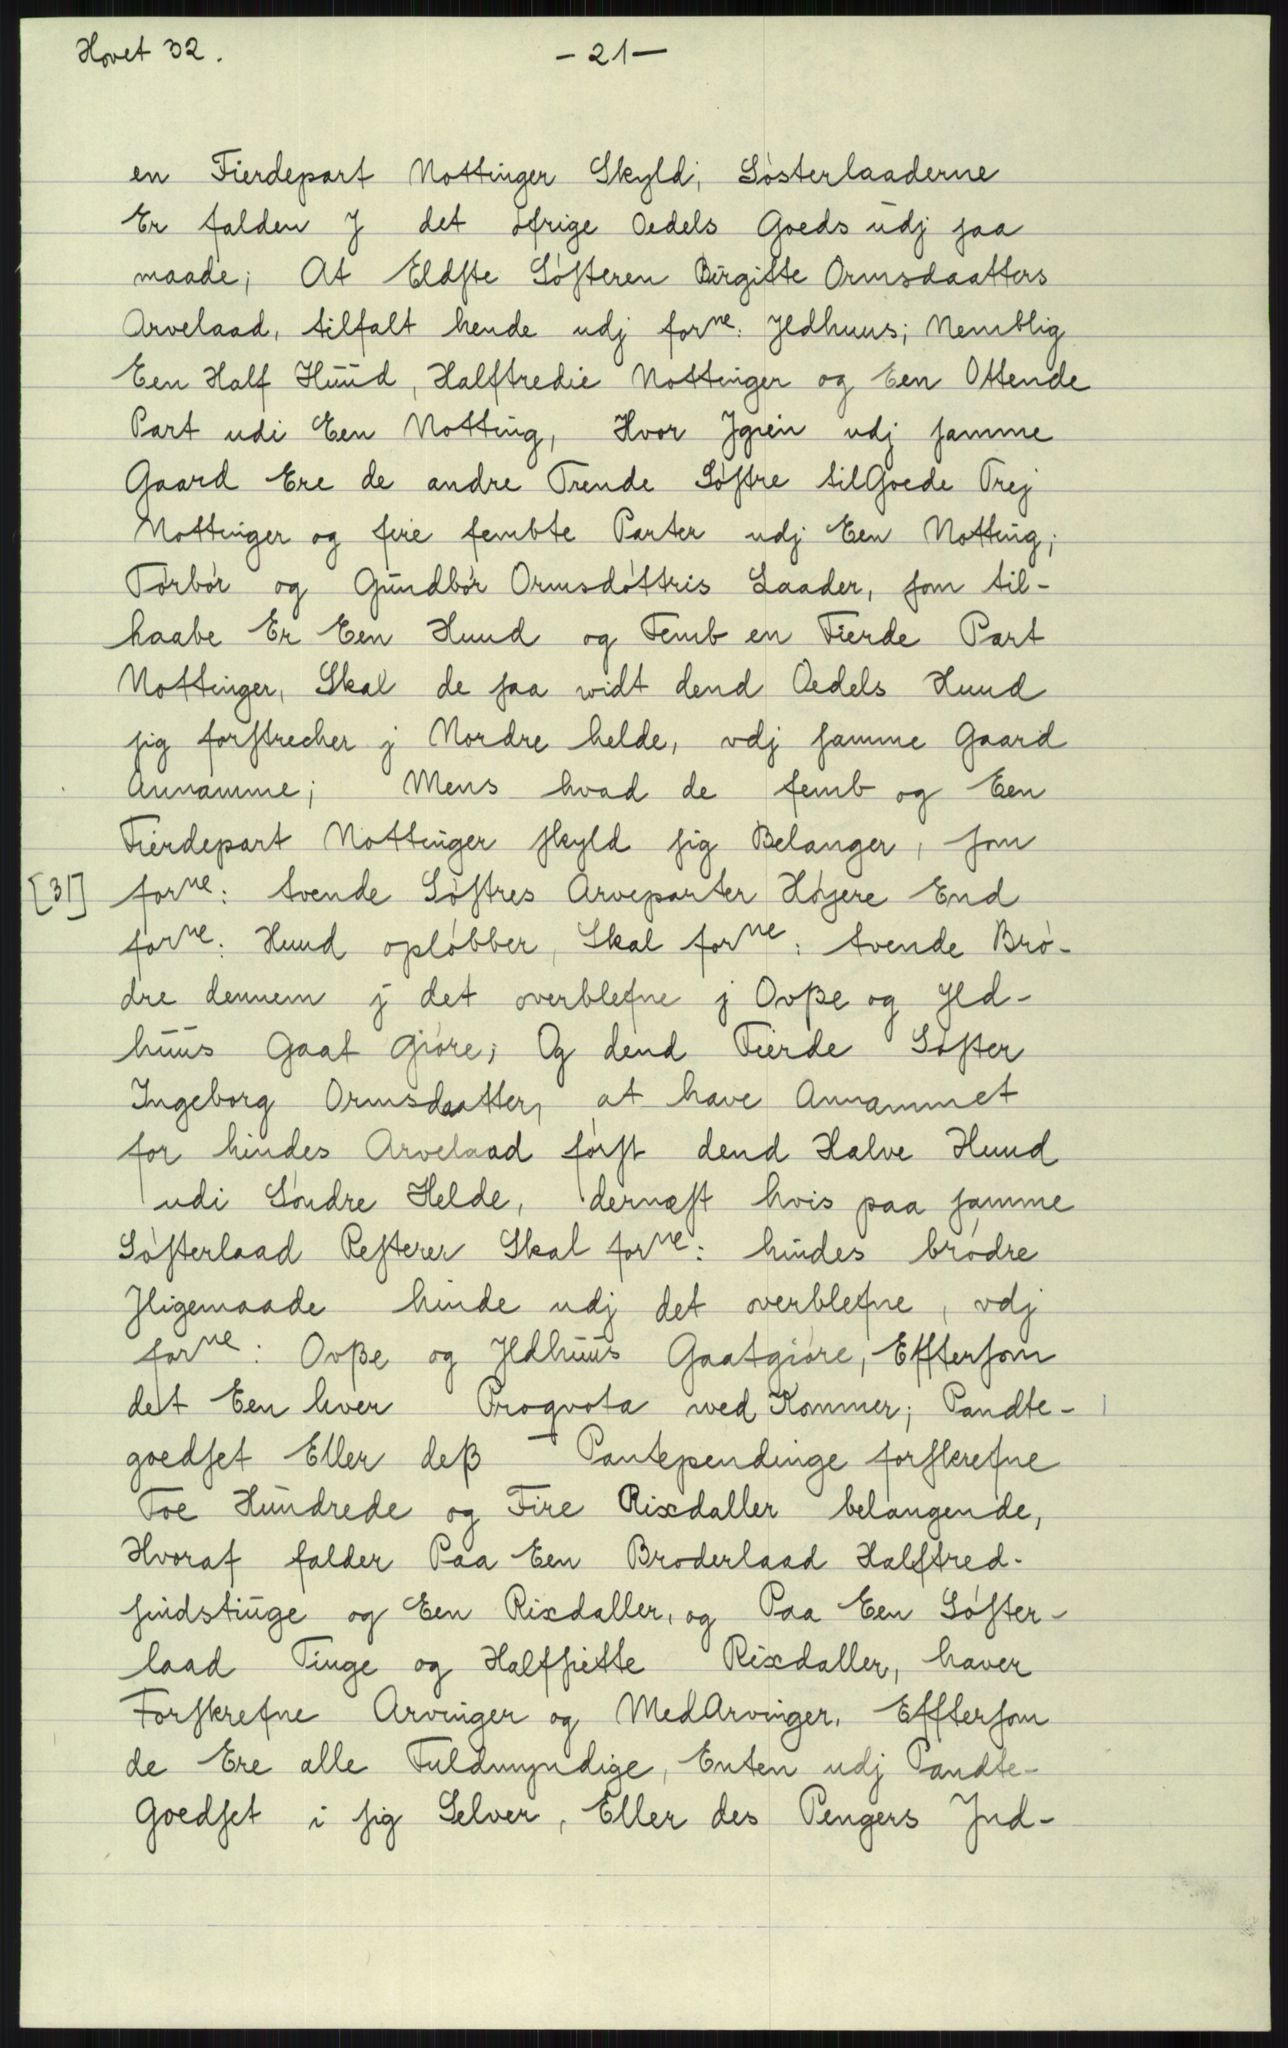 Hovet 32.
- 21 -
en Fierdepart Nottinger Skyld, Søsterlaaderne
Er falden J det öfrige Oedels Goeds udj saa
maade; At Eldste Søsteren Birgitte Ormsdaatters
Arvelaad, tilfalt hende udj forne: Jldhuus; Nemblig
Een Half Huud, Halftredie Nottinger og Een Ottende
Part udi Een Notting, Hvor Jgien udj samme
Gaard Ere de andre Trende Søstre tilGoede Trej
Nottinger og fire fembte Parter udj Een Notting;
Torbór og Gundbór Ormsdóttris Laader, som til-
haabe Er Een Huud og Femb en Fierde Part
Nottinger, Skal de saa widt dend Oedels Huud
sig forstrecher j Nordre helde, vdj samme Gaard
Annamme; Mens hvad de femb og Een
Fierdepart Nottinger skyld sig Belanger, som
[31] forne: tvende Søstres Arveparter Høyere End
forne: Huud opløbber, Skal forne: tvende Brø-
dre dennem j det overblefne j Ovße og Jld-
huus Gaat Giøre; Og dend Fierde Søster
Ingeborg Ormsdaatter, at have Annammet
for hindes Arvelaad først dend Halve Huud
udi Søndre Helde, dernæst hvis paa samme
Søsterlaad Resterer Skal forne: hindes brødre
Jligemaade hinde udj det overblefne, vdj
forne: Ovße og Jldhuus Gaatgiøre, Efftersom
det Een hver Proqvota ved Kommer; Pandte-
goedset Eller deß Pantependinge forskrefne
Toe Hundrede og Fire Rixdaller belangende,
Hvoraf falder Paa Een Broderlaad Halftred-
sindstiuge og Een Rixdaller, og Paa Een Søster-
laad Tiuge og Halfsiette Rixdaller, haver
Forskrefne Arvinger og MedArvinger, Efftersom
de Ere alle Fuldmyndige, Enten udj Pandte-
Goedset i sig Selver, Eller des Pengers Jnd-